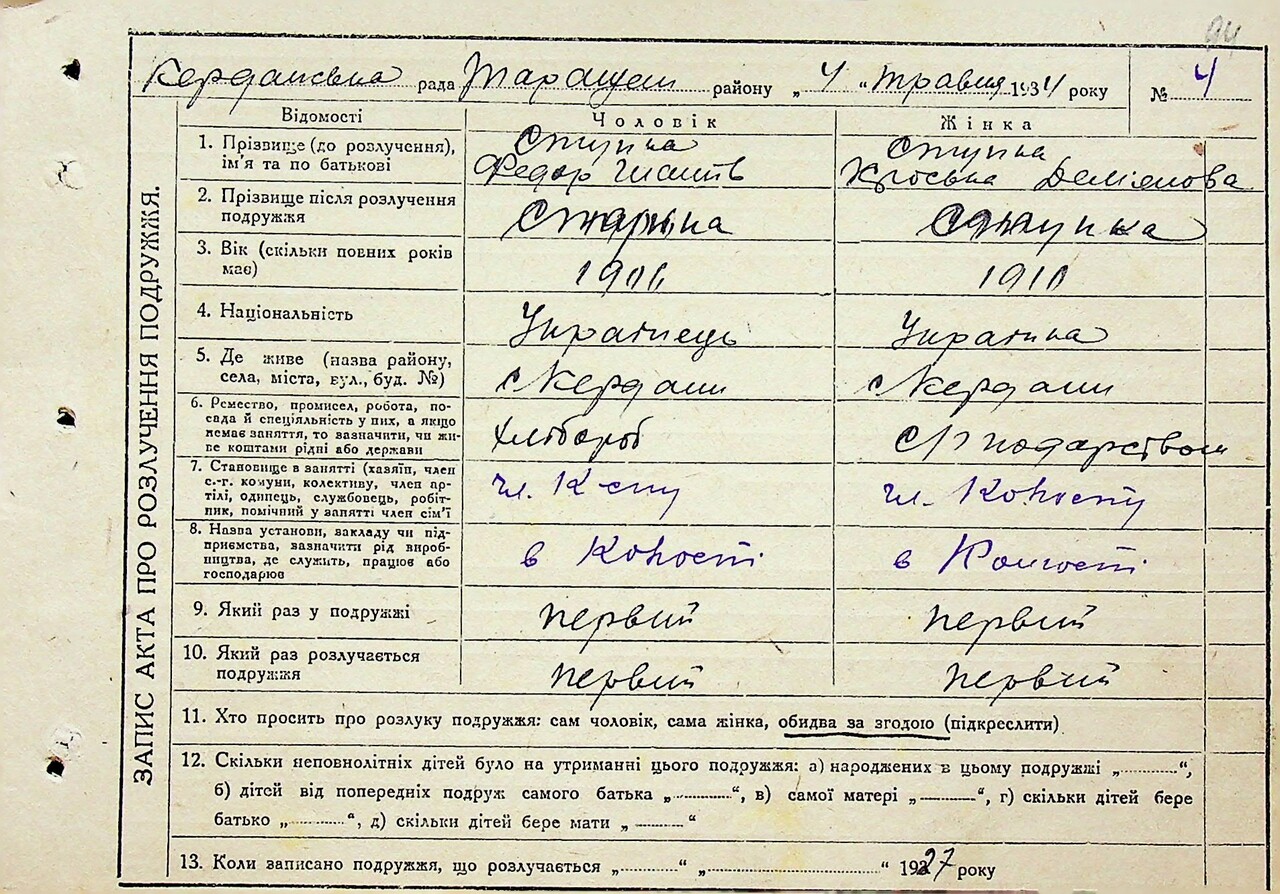 94
Керданська рада Таращан району „4 “ травня 1934 року № 4
ЗАПИС АКТА ПРО РОЗЛУЧЕННЯ ПОДРУЖЖЯ.
Відомості Чоловік Жінка
1. Прізвище (до розлучення), Ступка Ступка
ім’я та по батькові Федор Демянова
2. Прізвище після розлучення
подружжя Ступка Ступка
3. Вік (скільки повних років
має) 1910
4. Національність Украінець Украінка
5. Де живе (назва району,
села, міста, вул., буд. №) с Кердани с Кердани
6. Ремество, промисел, робота, по-
сада й спеціяльність у них, а якщо
немає заняття, то зазначити, чи жи-
ве коштами рідні або держави Хлібороб
7. Становище в занятті (хазяїн, член
с.-г. комуни, колективу, член ар-
тілі, одинець, службовець, робіт-
ник, помічний у занятті член сім’ї чл. чл.
8. Назва установи, закладу чи під-
приємства, зазначити рід вироб-
ництва, де служить, працює або
господарює в в
9. Який раз у подружжі первий первий
10. Який раз розлучається
подружжя первий первий
11. Хто просить про розлуку подружжя: сам чоловік, сама жінка, обидва за згодою (підкреслити)
12. Скільки неповнолітніх дітей було на утриманні цього подружжя: а) народжених в цьому подружжі „..........“,
б) дітей від попередніх подруж самого батька „..........“, в) самої матері „..........“, г) скільки дітей бере
батько „..........“, д) скільки дітей бере мати „..........“
13. Коли записано подружжя, що розлучається „..........“ „..............................“ 1927 року